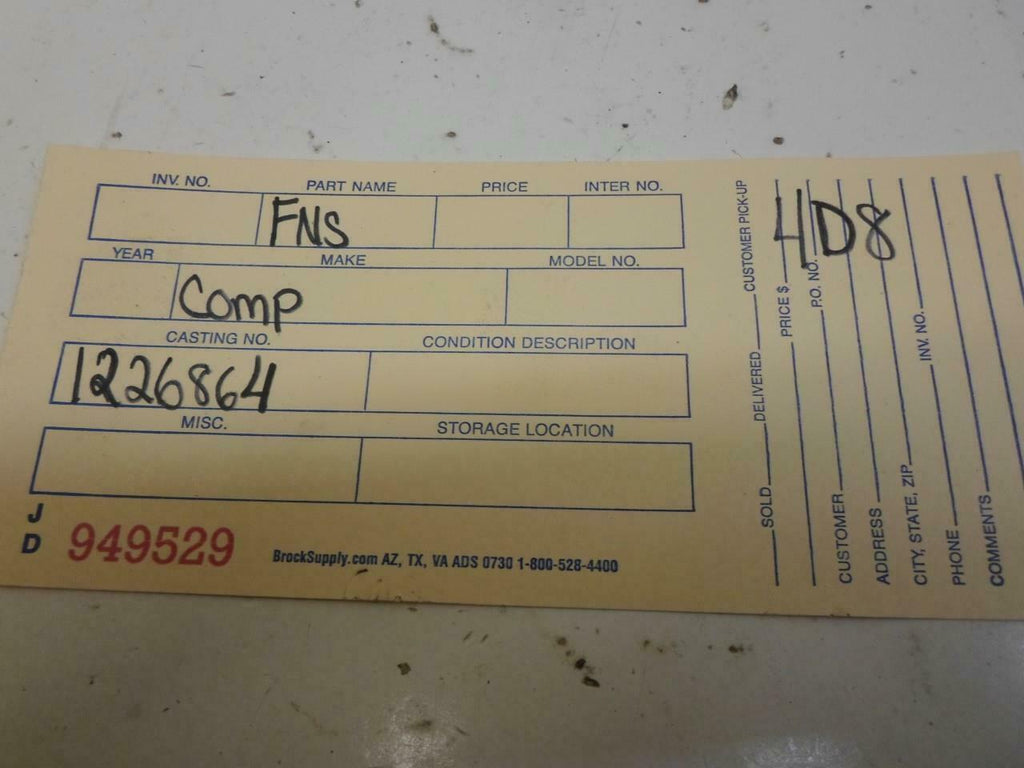 INV. NO. PART NAME PRICE INTER NO.
FNS
YEAR MAKE MODEL NO.
Comp
CASTING NO. CONDITION DESCRIPTION
1226864
MISC. STORAGE LOCATION
J
D
949529
BrockSupply.com AZ, TX, VA ADS 0730 1-800-528-4400
4D8
SOLD DELIVERED CUSTOMER PICK-UP
PRICE $
P.O. NO.
CUSTOMER
ADDRESS
CITY, STATE, ZIP
PHONE INV. NO.
COMMENTS